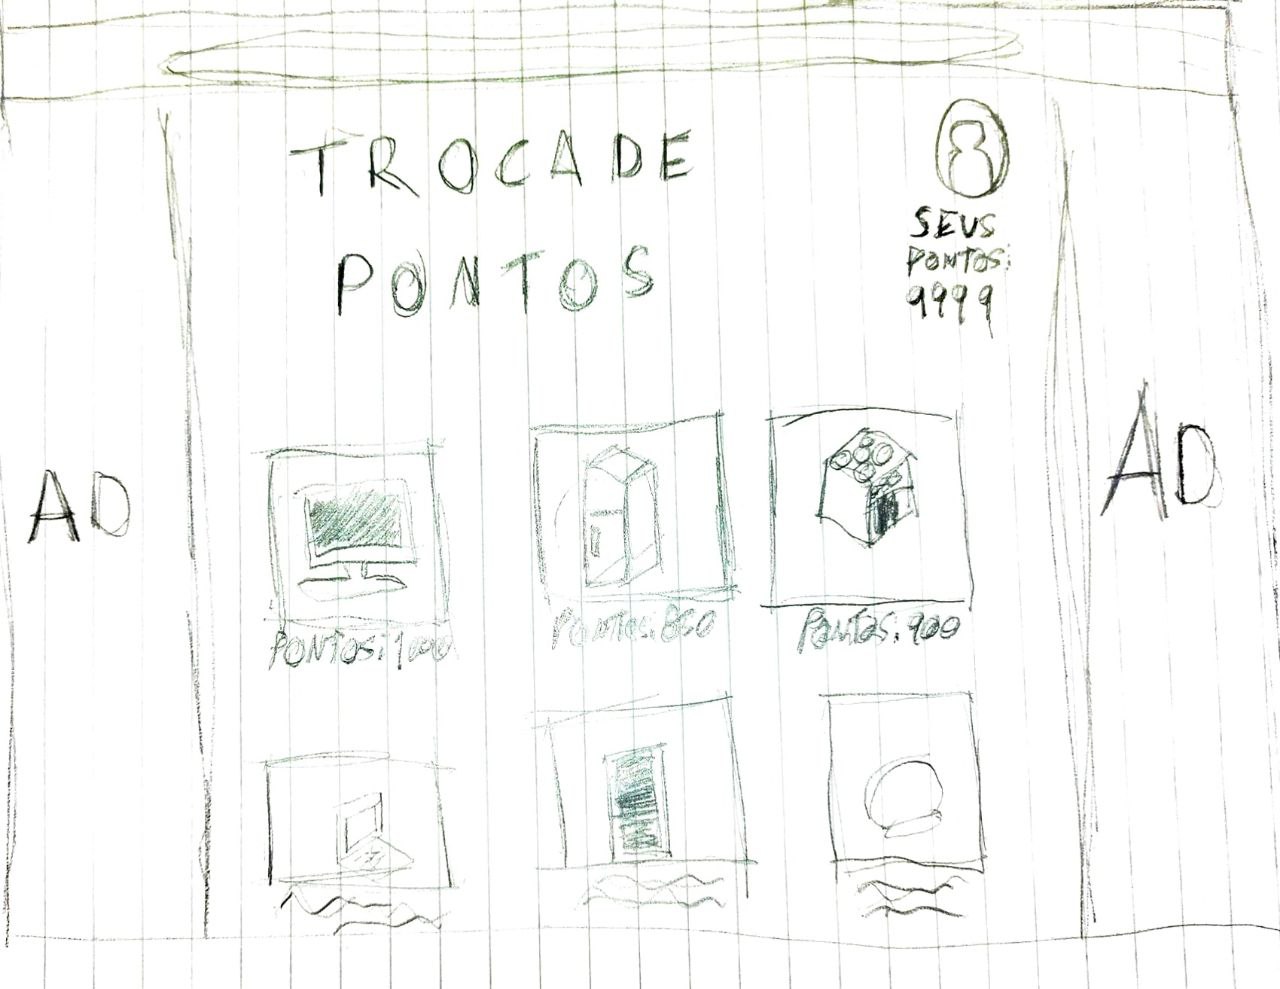 TROCA DE
PONTOS
SEUS
PONTOS:
9999
AD
AD
PONTOS: 1000
PONTOS: 800
PONTOS: 900